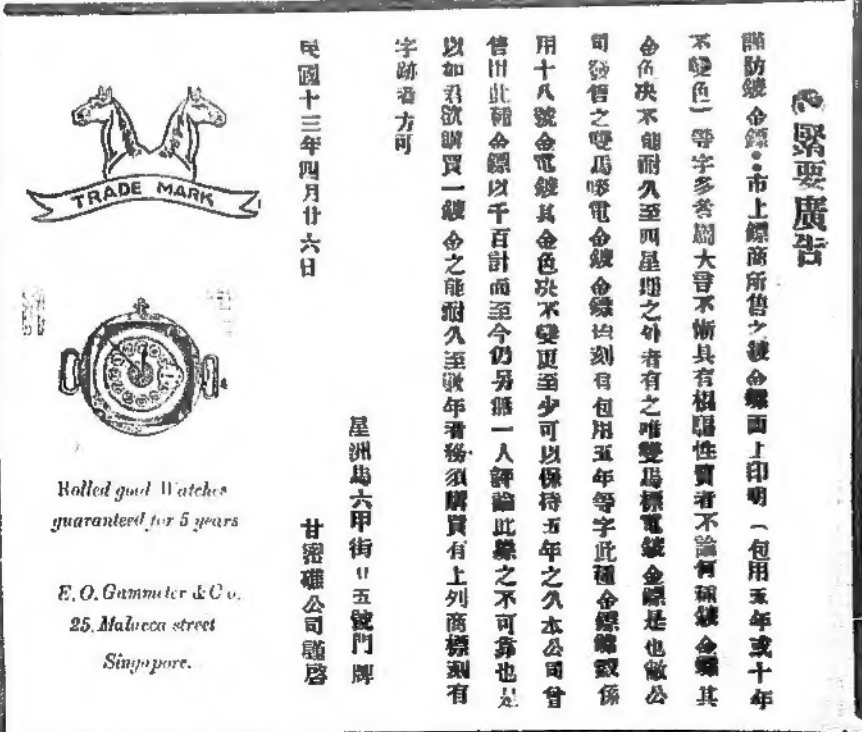 緊要廣告
謹防鍍金鏢●●市上鏢商所售之鍍金鏢面上印明（包用五年或十年
不變色）等字多者屬大言不慚具有相騙性質者不論何種鍍金鏢其
金色决不能耐久至四星期之外者有之唯雙馬標電鍍金鏢是也敝公
司發售之雙馬嘜電金鍍金鏢均刻有包用五年等字此種金鏢鏢殼係
用十八號金電鍍其金色决不變更至少可以保持五年之久本公司曾
售出此種金鏢以千百計而至今仍另無一人評論此鏢之不可靠也是
以如君欲購買一鍍金之能耐久至數年者務須購買有上列商標刻有
字跡者方可
星洲馬六甲街廿五號門牌
甘密礁公司謹啓
民國十三年四月廿六日
TRADE MARK
Rolled good Watches
guaranteed for 5 years
E. O. Gammeter & Co.
25, Malacca street
Singapore.